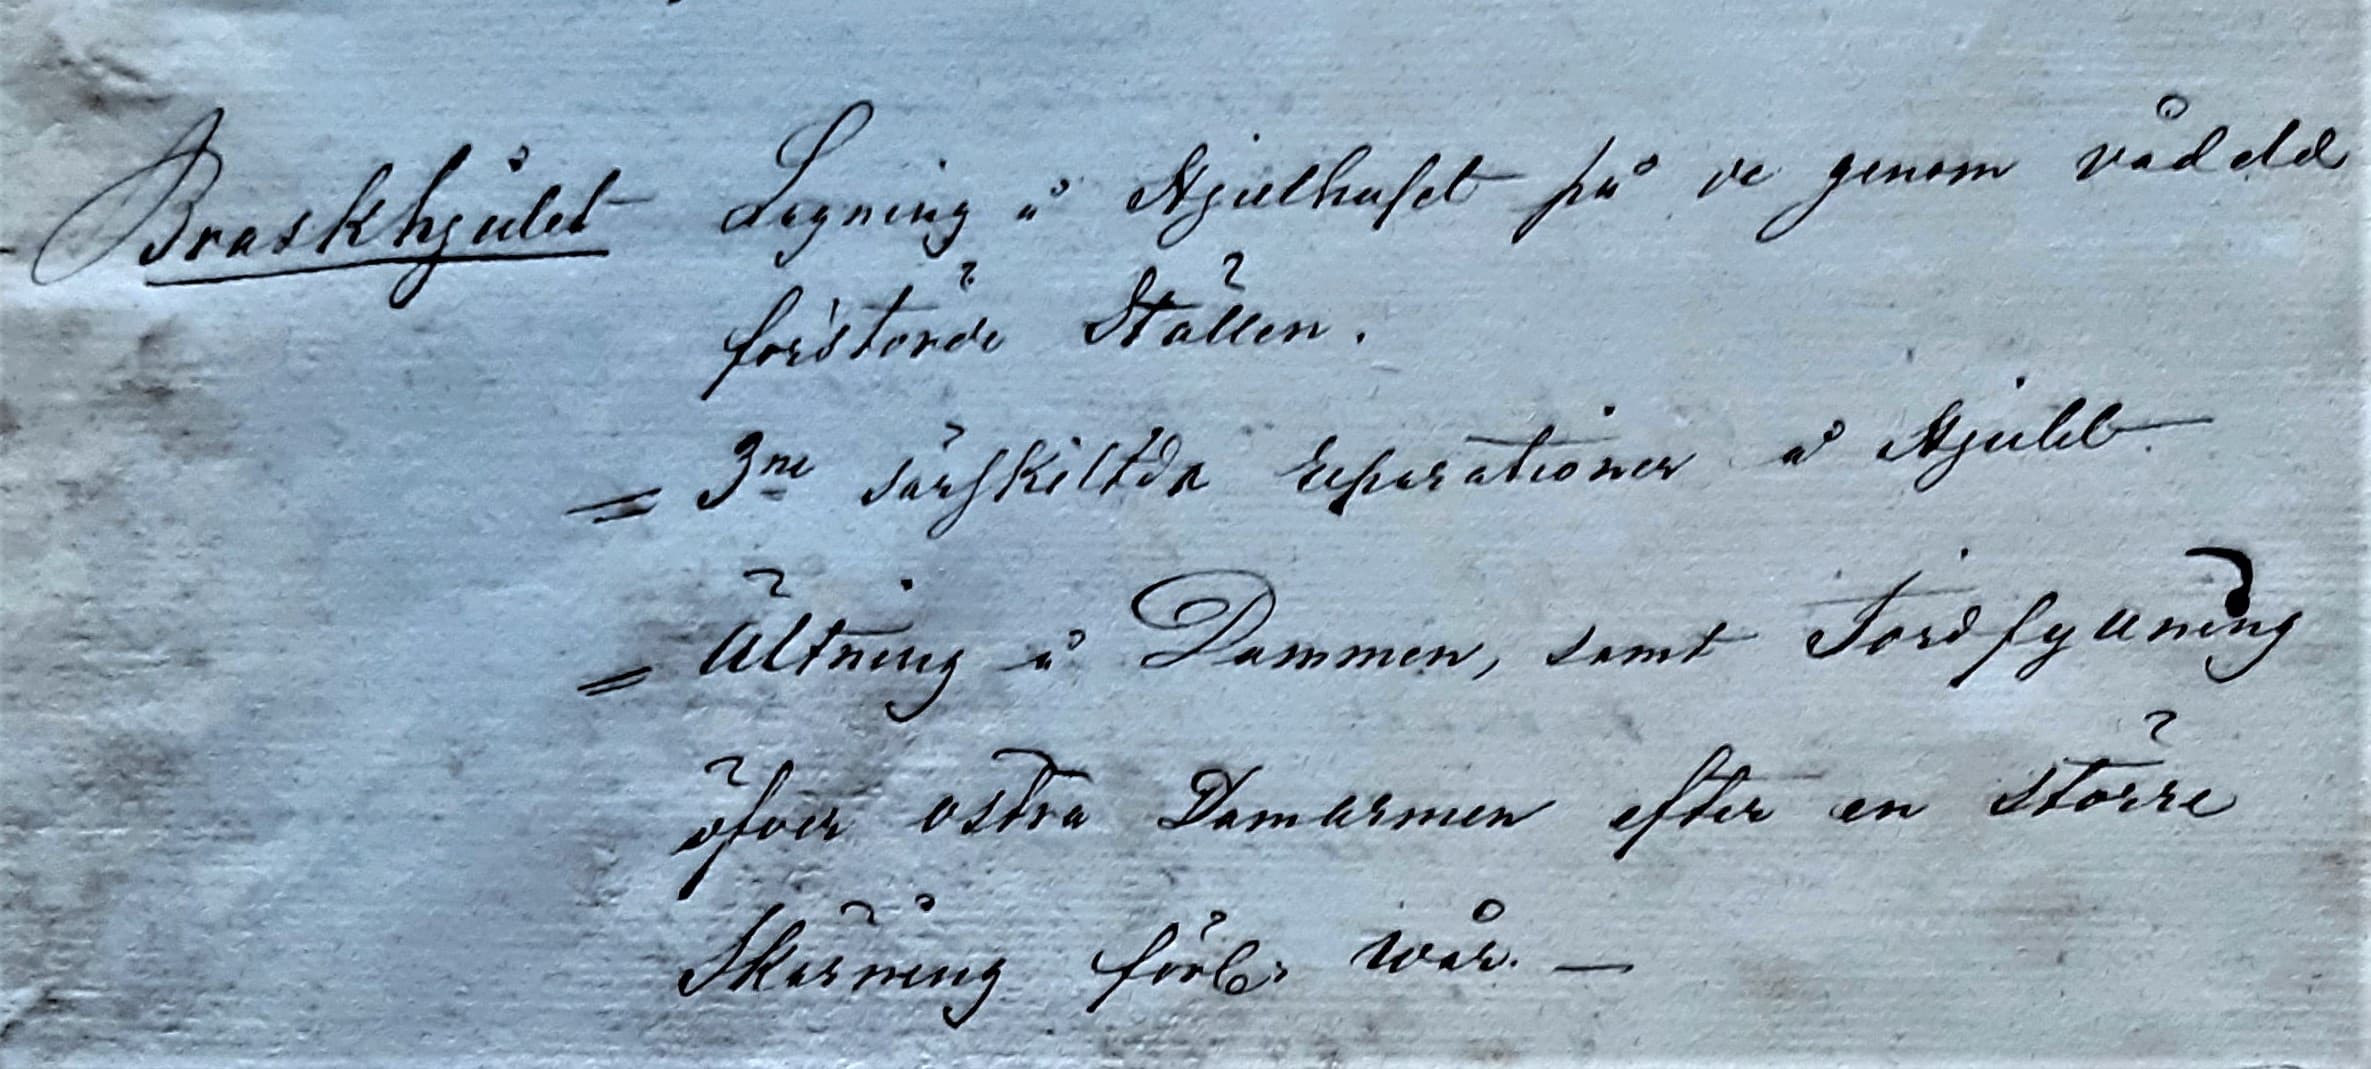 Braskhjulet Lagning å Hjulhuset på de genom vådeld
förstörde Ställen.
= 3ne särskiltda reparationer å Hjulet
= Ältning å Dammen, samt Jordfyllning
öfver östra Damarmen efter en större
Skärning förl. wår. —